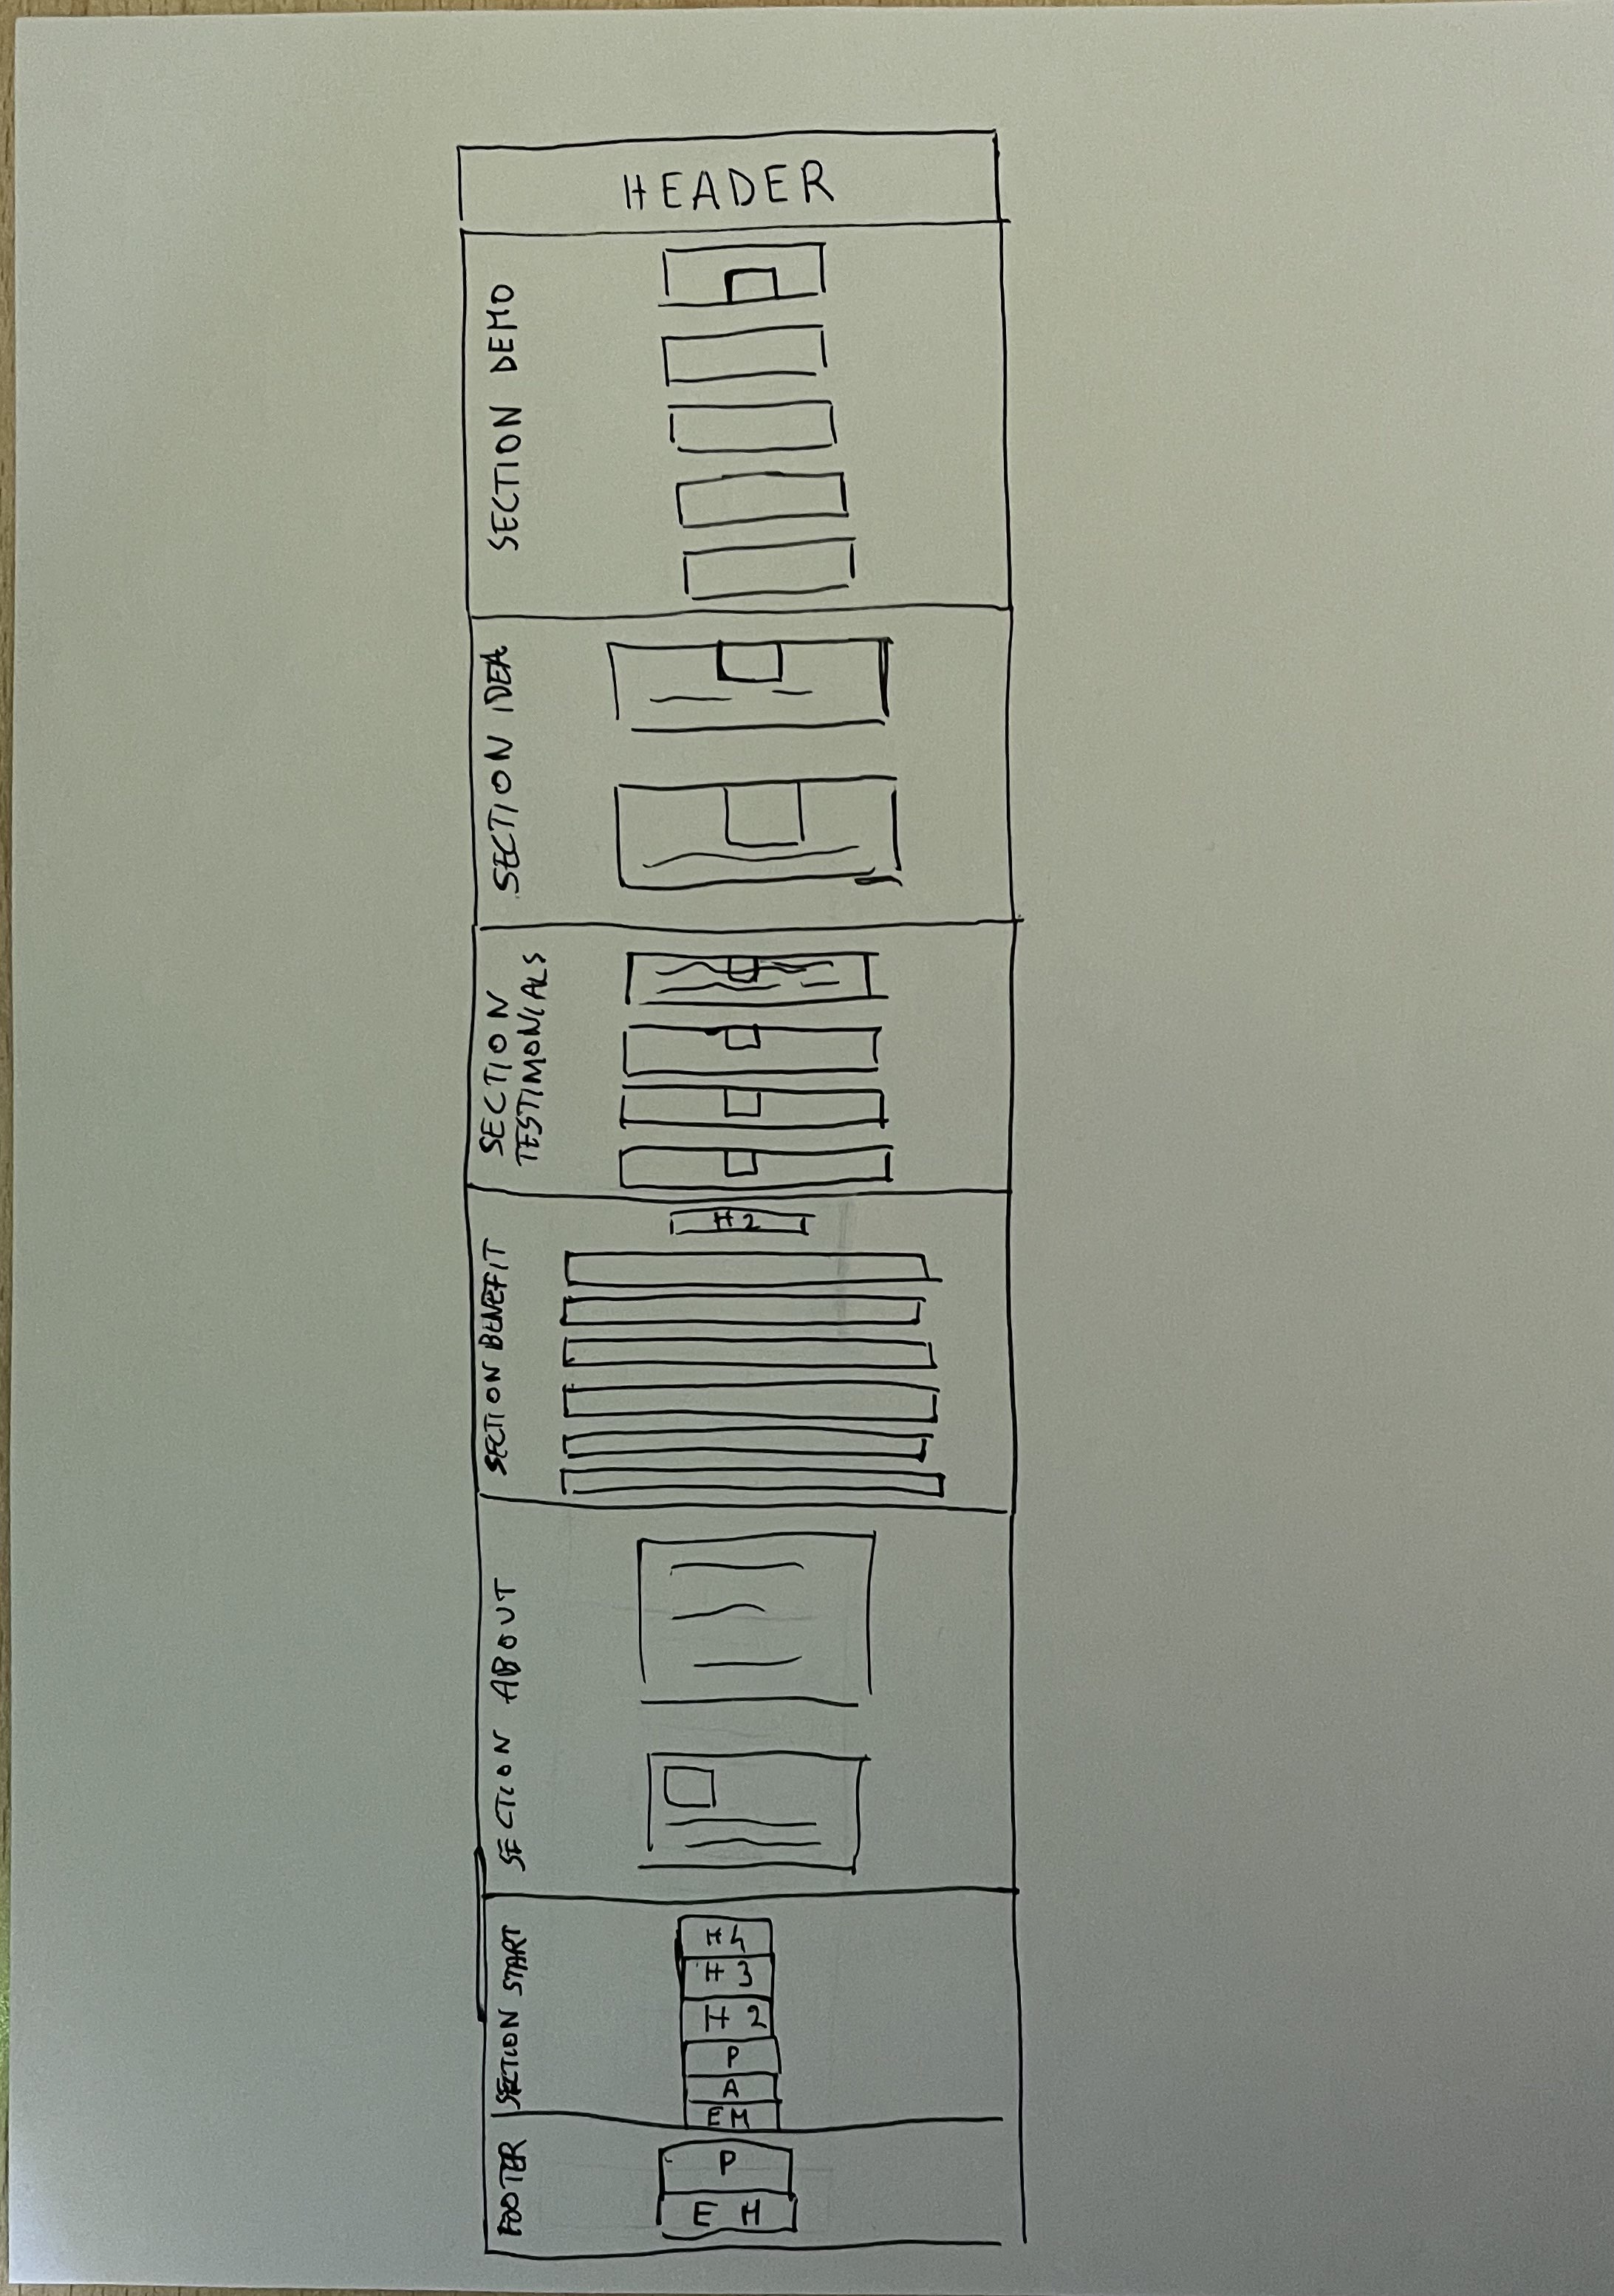 HEADER
SECTION DEMO
SECTION IDEA
SECTION
TESTIMONIALS
SECTION BENEFIT
H2
SECTION ABOUT
SECTION START
H4
H3
H2
P
A
EM
FOOTER
P
EM